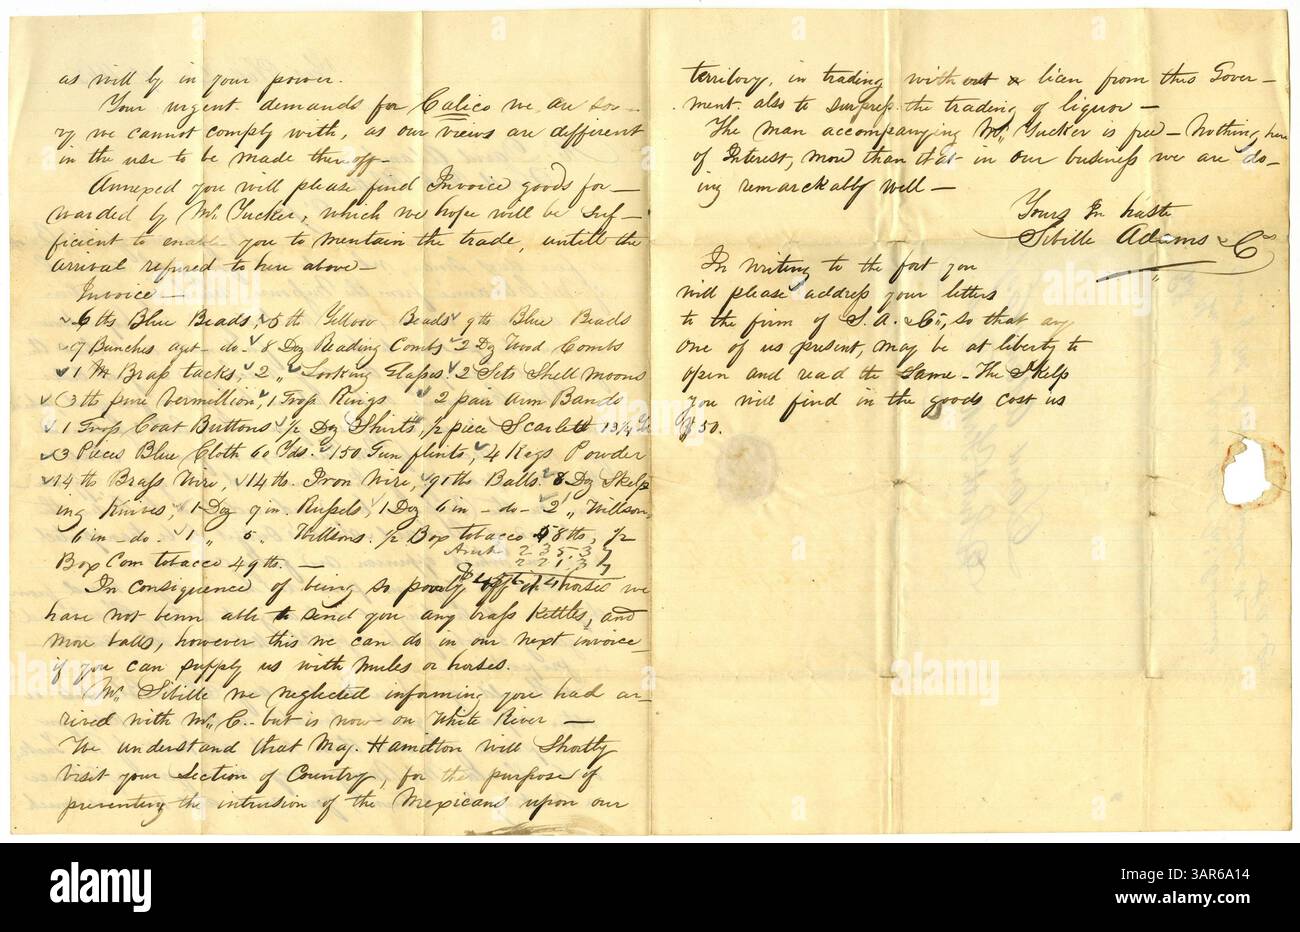 as will by in your power.
Your urgent demands for Calico we are sor-
ry we cannot comply with, as our views are different
in the use to be made thereoff-
Annexed you will please find Invoice goods for-
warded by Mr. Tucker, which we hope will be suf-
ficient to enable you to mentain the trade, untill the
arrival refured to here above-
Invoice-
6 lbs Blue Beads, 5 lb Yellow Beads 9 lbs Blue Beads
7 Bunches agt- do- 8 Doz Reading Combs 2 Doz Wood Combs
1 M Brass tacks, 2 " Looking Glasses 2 Sets Shell moons
3 lb pure Vermillion, 1 Grop Rings 2 pair arm Bands
1 Grop Coat Buttons 1/2 Doz Shirts, 1/2 piece Scarlett 13 3/4 Yd
3 Pieces Blue Cloth 60 Yds. 150 Gun flints, 4 Kegs Powder
14 lbs Brass Wire, 14 lbs. Iron Wire, 91 lbs Balls. 8 Doz Skelp
ing Knives, 1 Doz 7 in. Russels, 1 Doz 6 in - do - 2 " Willson
6 in - do. 1 " 5. Willsons. 1/2 Box tobacco 58 lbs, 1/2
Box Com tobacco 49 lbs. - Amt 235.37
221.37
$456.74
In consequence of being so poorly off in horses we
have not benn able to send you any brass Kettles, and
more balls, however this we can do in our next invoice
if you can supply us with mules or horses.
Mr. Sibille we neglected informing you had ar-
rived with Mr. C.- but is now on White River -
We understand that Maj. Hamilton will Shortly
visit your Section of Country, for the purpose of
preventing the intrusion of the Mexicans upon our
territory, in trading without a lican from this Gover-
ment. also to surpress the trading of liquor -
The man accompanying Mr. Tucker is free - Nothing here
of Interest, more than that in our business we are do-
ing remarckably well -
Yours In haste
Sibille Adams & Co
In writing to the fort you
will please address your letters
to the firm of S. A. & Co, so that any
one of us present, may be at liberty to
open and read the same - The Skelp
you will find in the goods cost us
$50.
alamy
Image ID: 3AR6A14
www.alamy.com